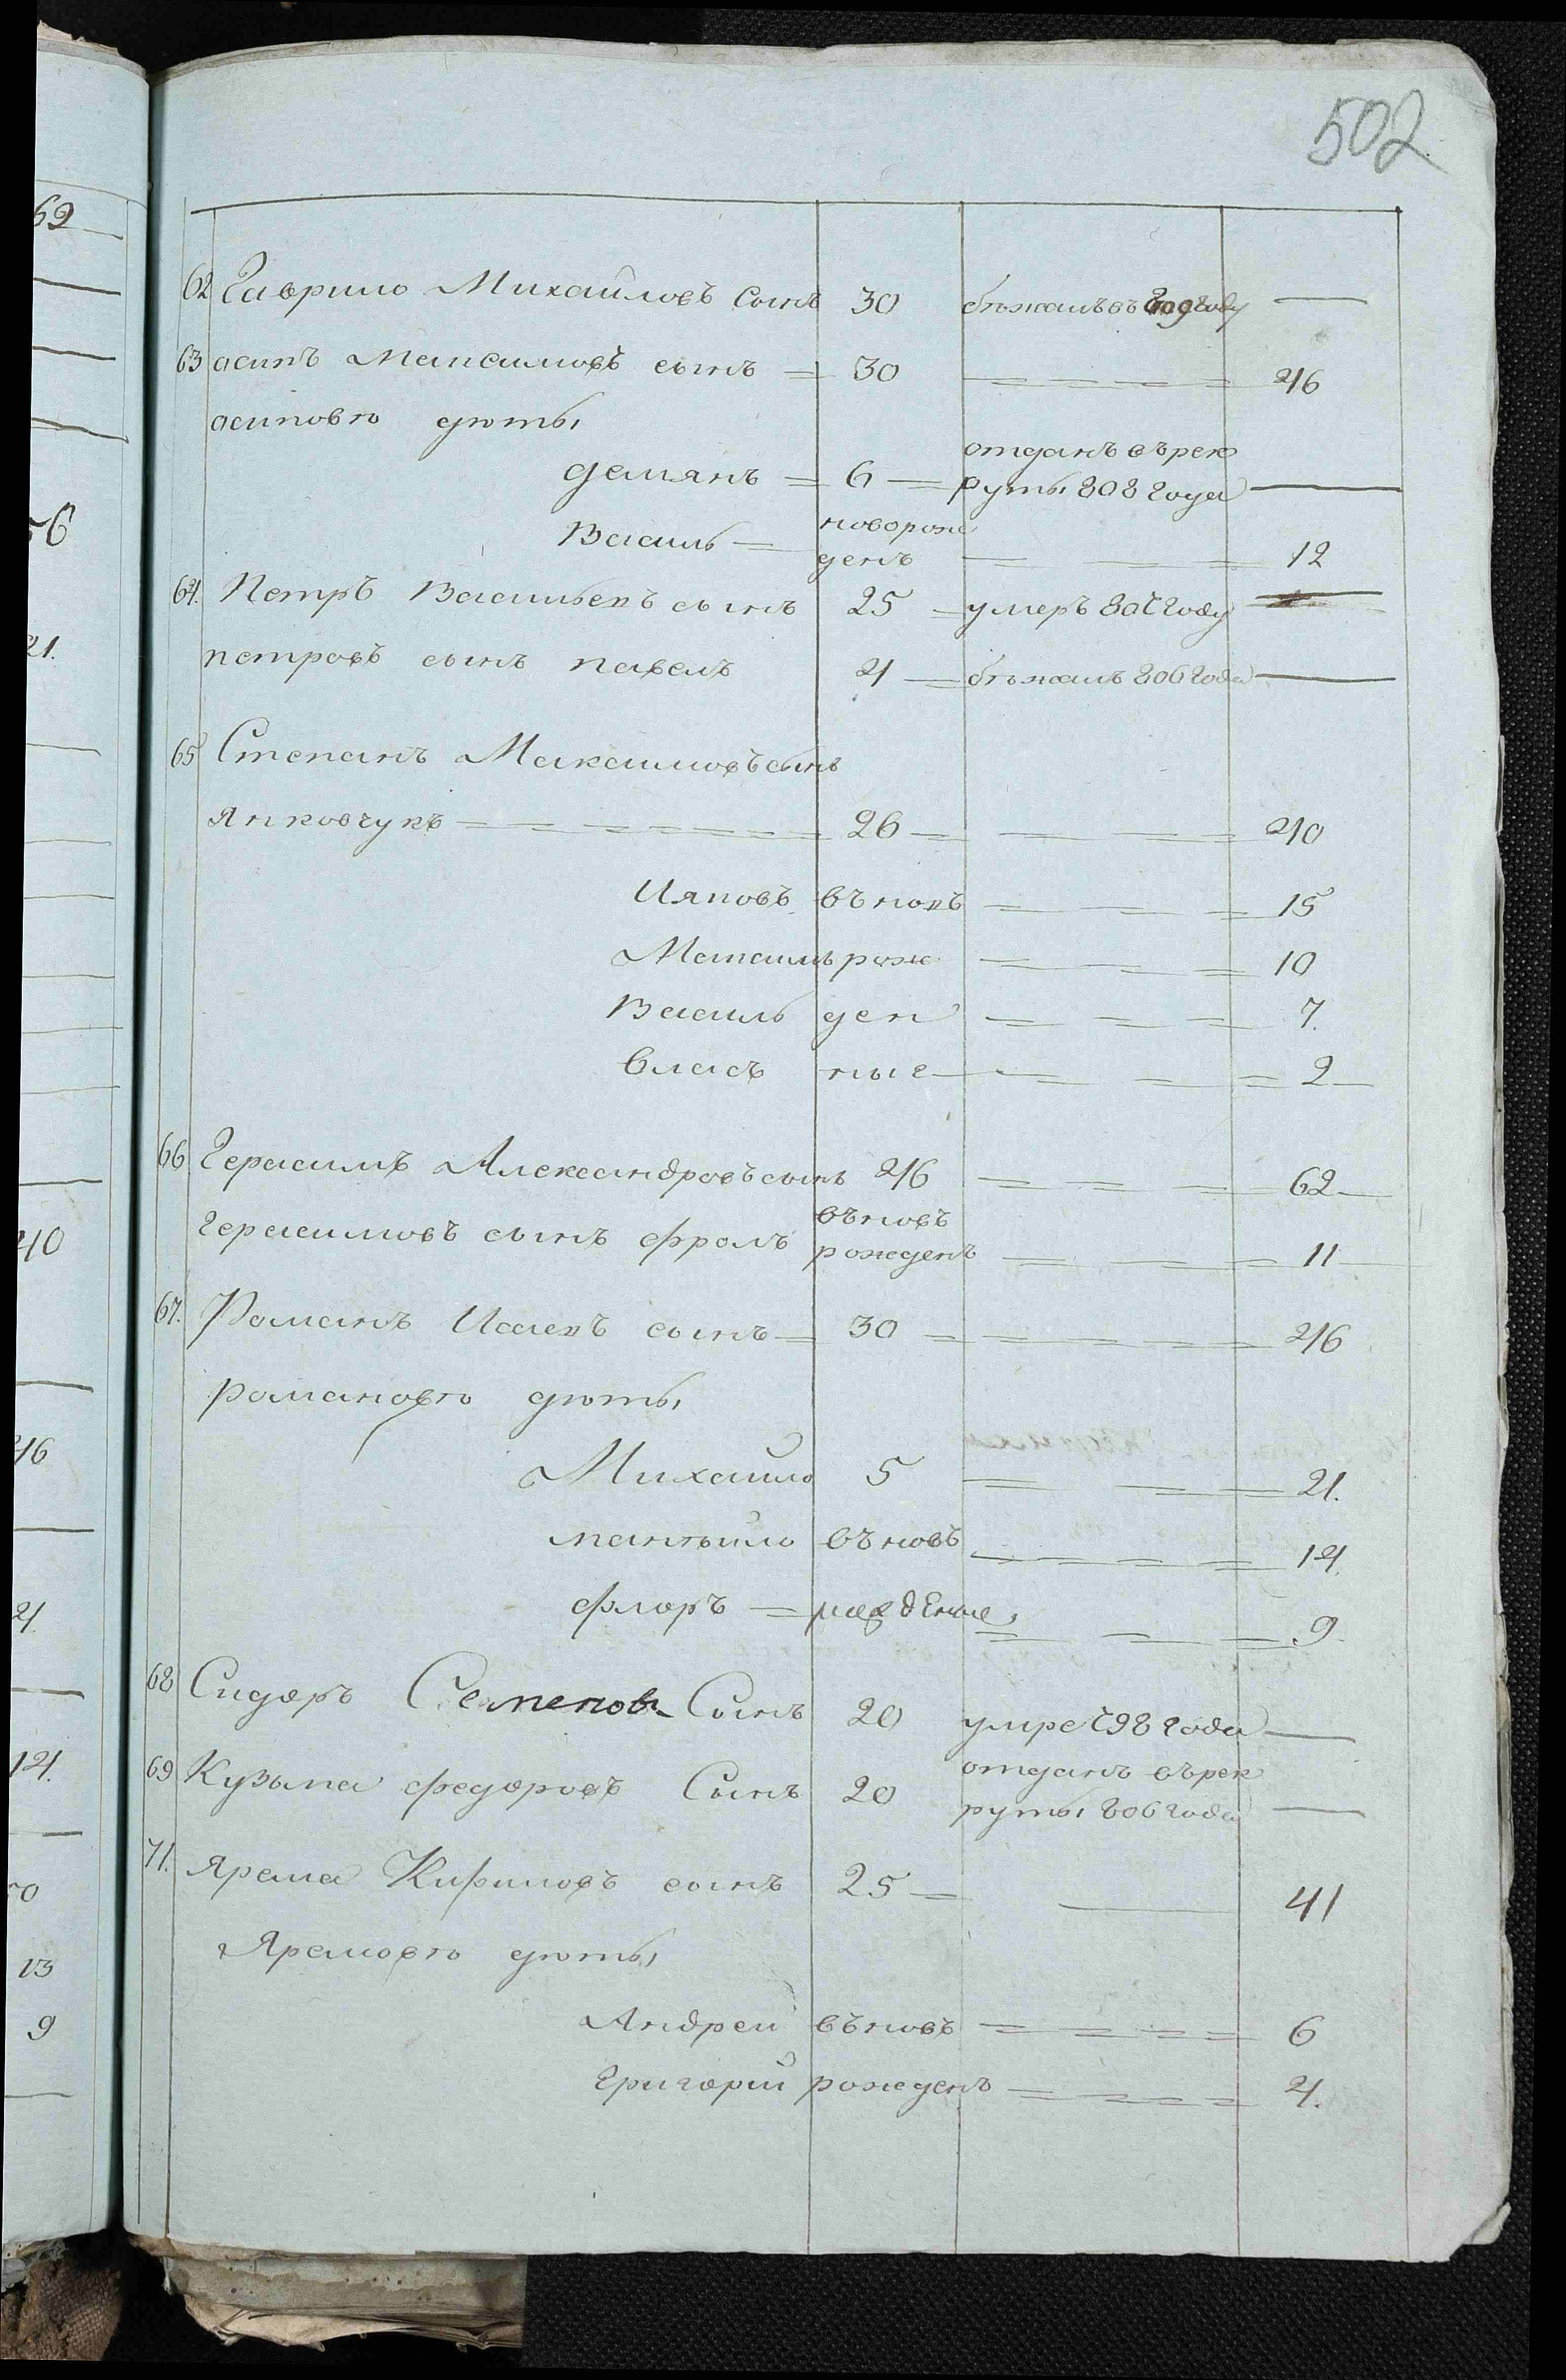 502
62 Гаврило Михайловъ Сынъ 30 бѣжалъ въ 809 году —
63 осипъ Максимовъ сынъ 30 46
осиповы дѣти
демянъ 6 отданъ въ рек
руты 808 года —
Василь новорож
денъ 12
64. Петръ Васильевъ сынъ 25 умеръ 807 году
петровъ сынъ павелъ 4 бѣжалъ 806 года —
65 Степанъ Максимовъ сынъ
Янковчукъ 26 40
Ияковъ въновь 15
Максимъ рож 10
Василь ден 7.
власъ ные 2
66 Герасимъ Александровъ сынъ 46 62
герасимовъ сынъ фролъ въновъ
рожденъ 11
67. Романъ Исаевъ сынъ 30 46
романовы дѣти
Михайло 5 21.
панѣйло въновъ 14
флоръ рожденые 9
68 Сидоръ Семеновъ Сынъ 20 умре 798 года —
69 Кузьма федоровъ Сынъ 20 отданъ въ рек
руты 806 года —
71. ярема Кириловъ сынъ 25 41
Яремовы дѣти
Андрей въновъ 6
Григорий рожденъ 4.
62
56
21.
40
46
4
14.
13
9